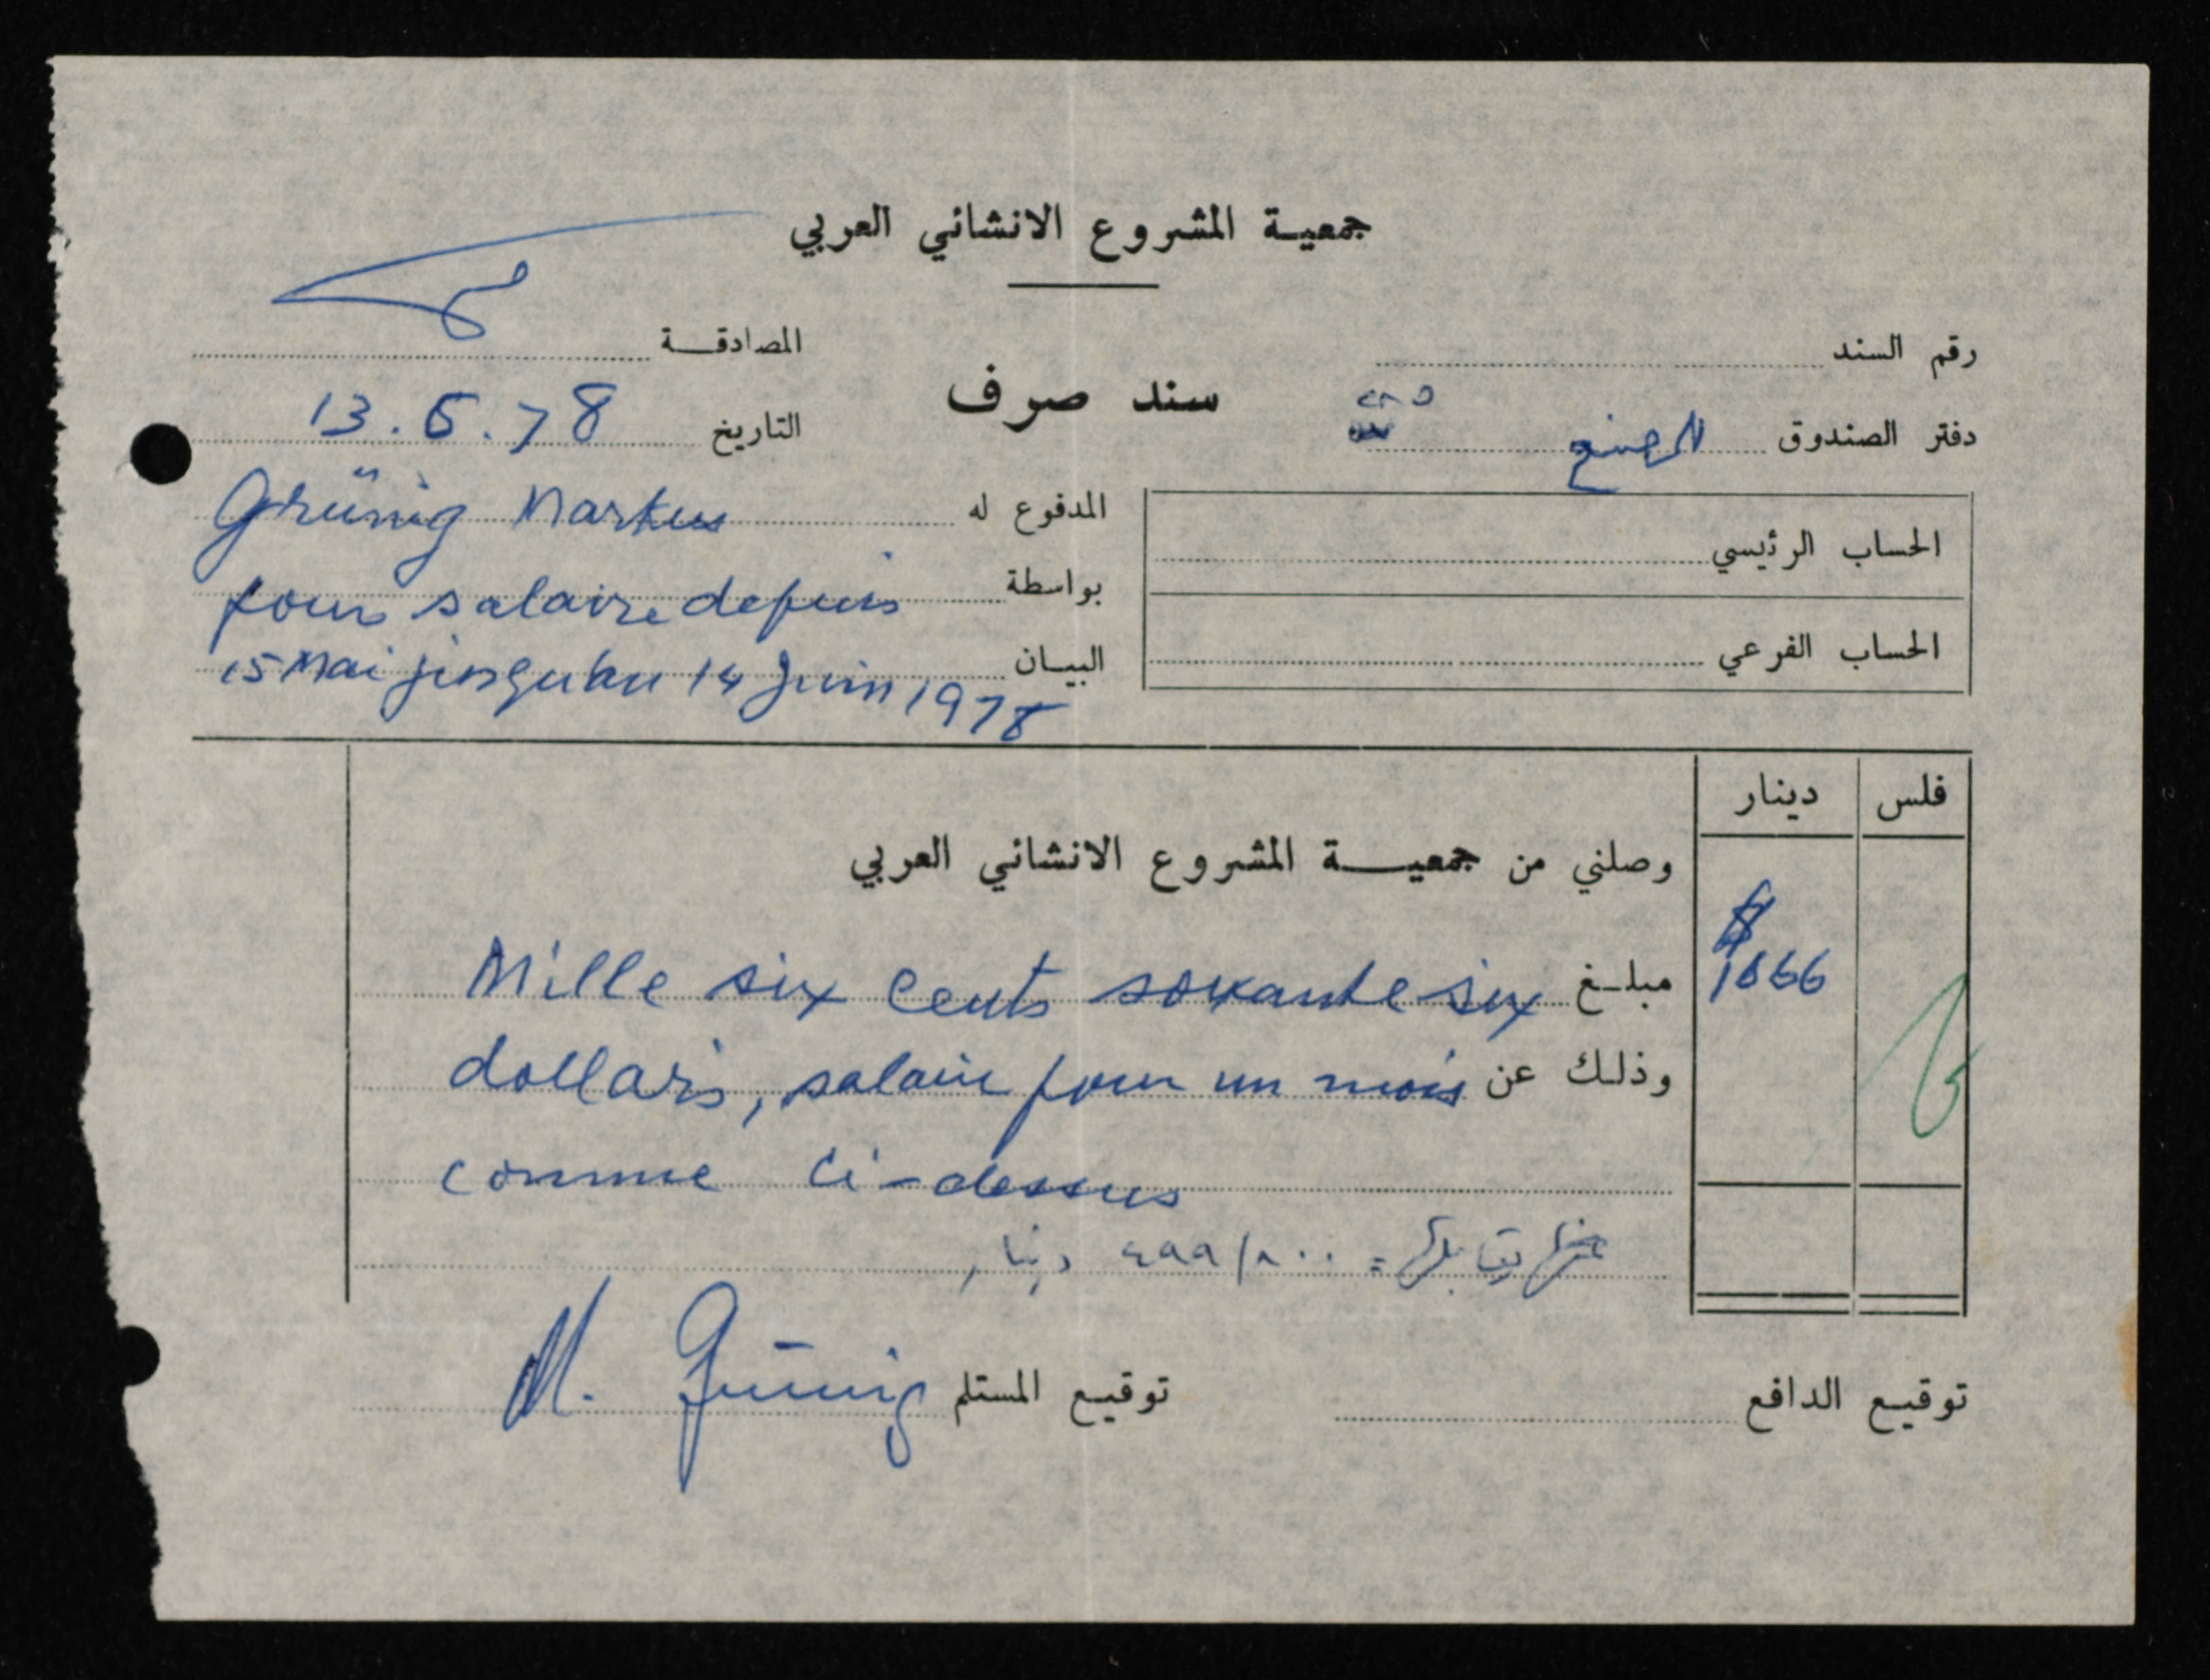 جمعية المشروع الانشائي العربي
المصادقة
رقم السند
سند صرف
التاريخ 13.6.78
دفتر الصندوق المصنع
المدفوع له Grünig Markus
بواسطة pour salaire depuis
البيان 15 Mai jusqu'au 14 Juin 1978
الحساب الرئيسي
الحساب الفرعي
فلس دينار
وصلني من جمعية المشروع الانشائي العربي
$
مبلغ Mille six cents soixante six 1666
وذلك عن dollars, salaire pour un mois
comme ci-dessus
= ٤٩٩/٨٠٠ دينار
توقيع الدافع
توقيع المستلم M. Grünig